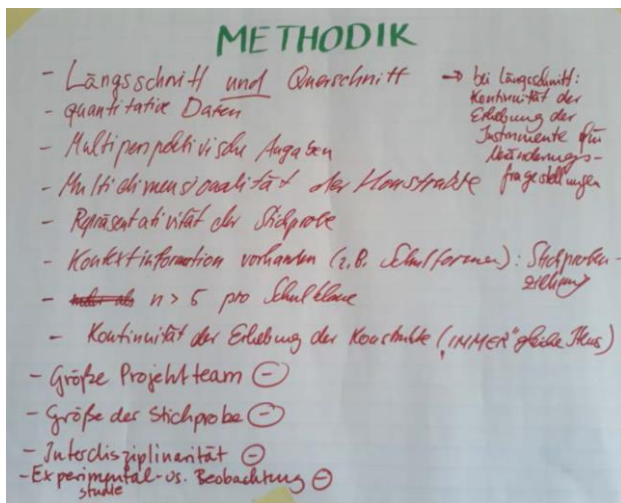 METHODIK
- Längsschnitt und Querschnitt
→ bei Längsschnitt:
Kontinuität der
Erhebung der
Instrumente für
Veränderungs-
fragestellungen
- quantitative Daten
- Multiperspektivische Angaben
- Multidimensionalität der Konstrukte
- Repräsentativität der Stichprobe
- Kontextinformation vorhanden (z.B. Schulformen): Stichproben-
ziehung
- mehr als n > 5 pro Schulklasse
- Kontinuität der Erhebung der Konstrukte („IMMER" gleiche Items)
- Größe Projektteam ⊖
- Größe der Stichprobe ⊖
- Interdisziplinarität ⊖
- Experimental- vs. Beobachtung ⊖
studie